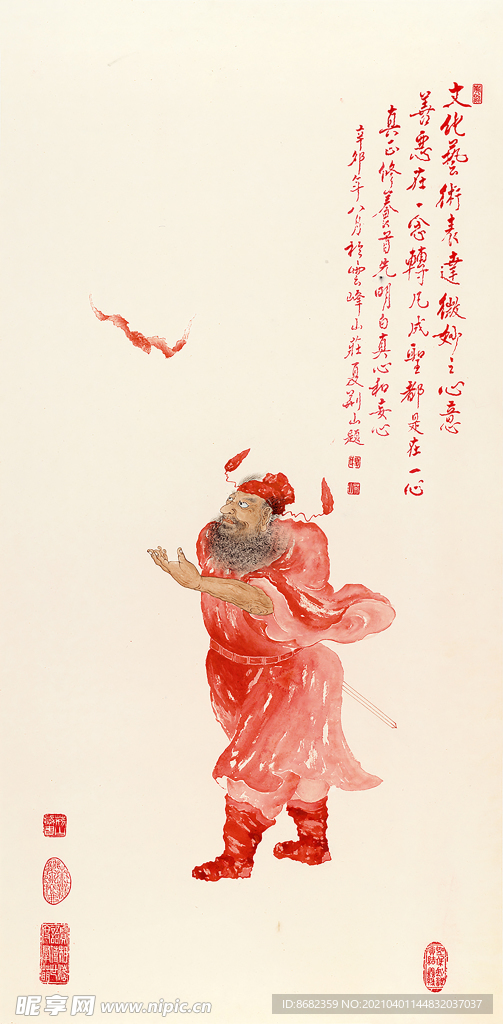 文化藝術表達微妙之心意
善惡在一念轉凡成聖都是在一心
真正修養首先明白真心和妄心
辛卯年八月於雲峰山莊夏荆山題
昵享网 www.nipic.cn
ID:8682359 NO:20210401144832037037